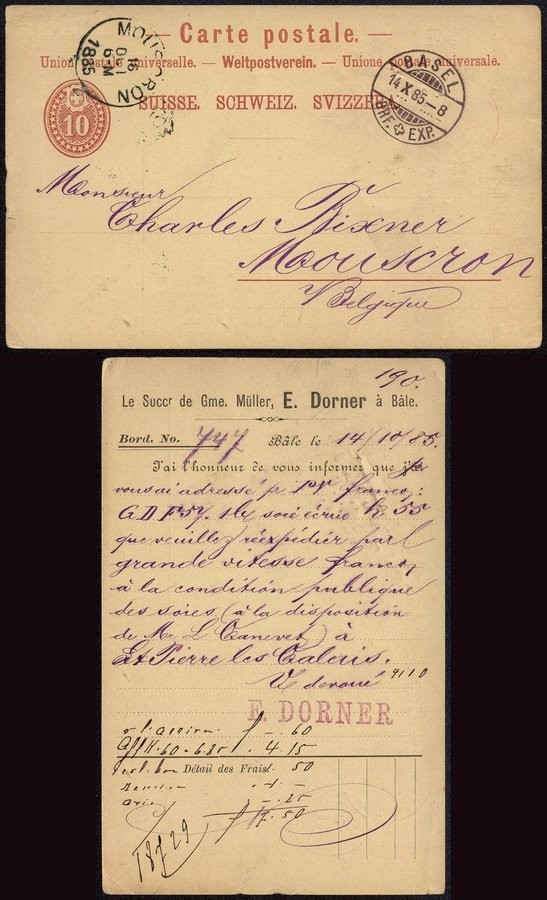 — Carte postale. —
Union postale universelle. — Weltpostverein. — Unione postale universale.
SUISSE. SCHWEIZ. SVIZZERA.
10
MOUSCRON
16
1885
BASEL
14 X 85 – 8
BRF. EXP.
Monsieur
Charles Bixner
Mouscron
Belgique
190.
Le Succr de Gme. Müller, E. Dorner à Bâle.
Bord. No. 747 Bâle le 14/10/85.
J'ai l'honneur de vous informer que je
vous ai adressé pr franco:
G D F 57. soie écrue k 55
que veuillez réexpédier par
grande vitesse franco
à la condition publique
des soies (à la disposition
de Mr L Canevet) à
St Pierre les Calais.
V devoué 4110
E. DORNER
f -. 60
60-635 . 4. 15
Détail des Frais: . 50
-. 25
f 7. 50
18729